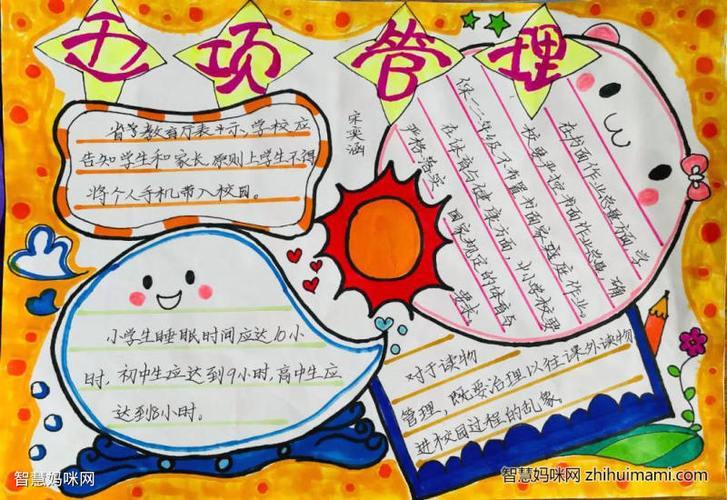 五项管理
省等教育厅表示,学校应
告知学生和家长,原则上学生不得
将个人手机带入校园。
宋奕涵
在书面作业总量方面,学
校要严控书面作业总量,确
保一二年级不布置书面家庭作业。
在体育与健康方面,中小学校
严格落实国家规定的体育与
要求
小学生睡眠时间应达10小
时,初中生应达到9小时,高中生应
达到8小时。
对于读物
管理,既要治理以往课外读物
进校园过程的乱象。
智慧妈咪网
智慧妈咪网 zhihuimami.com